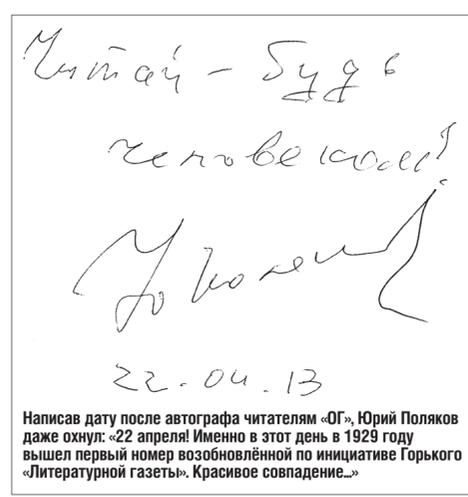 Читай – будь
человеком!
22.04.13
Написав дату после автографа читателям «ОГ», Юрий Поляков
даже охнул: «22 апреля! Именно в этот день в 1929 году
вышел первый номер возобновлённой по инициативе Горького
«Литературной газеты». Красивое совпадение...»